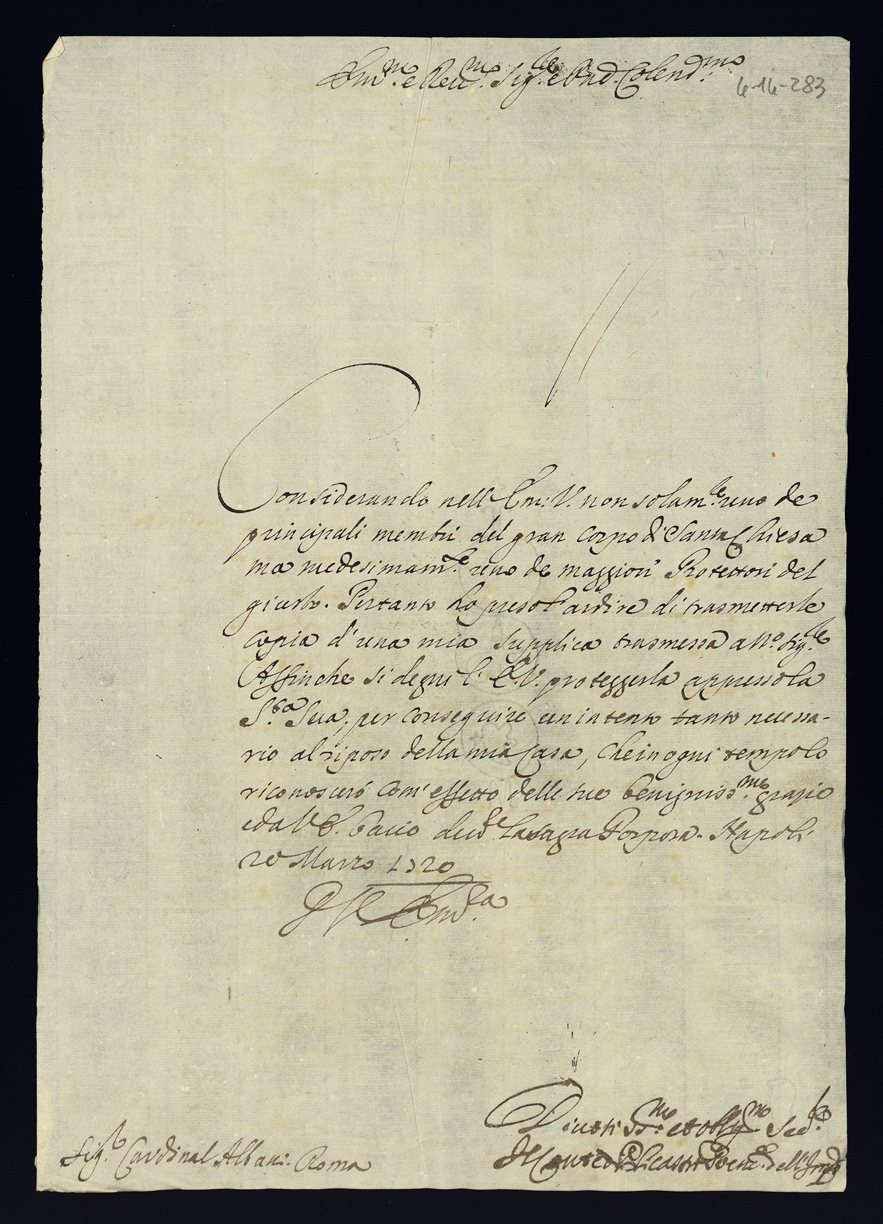 Em.mo e Rev.mo Sig.re e Pnd Colend.mo
6-16-283
Considerando nell' Em: V. non solam.te uno de
principali membri del gran corpo di Santa Chiesa
ma medesimam.te uno de maggiori Protettori del
giusto. Pertanto ho preso l'ardire di trasmetterle
copia d'una mia supplica trasmessa a N.o Sig.re
Affinche si degni l' E.V. proteggerla appresso la
S.ta Sua, per conseguire un intento tanto necessa-
rio al riposo della mia Casa, che in ogni tempo lo
riconosceró com' effetto delle sue benigniss.me grazie
ed a V.E. bacio la sagra Porpora. Napoli
20 Marzo 1720
Di V. Em.za
Sig.r Cardinal Albani. Roma
Divotiss.mo et obblig.mo Ser.
Il Conte